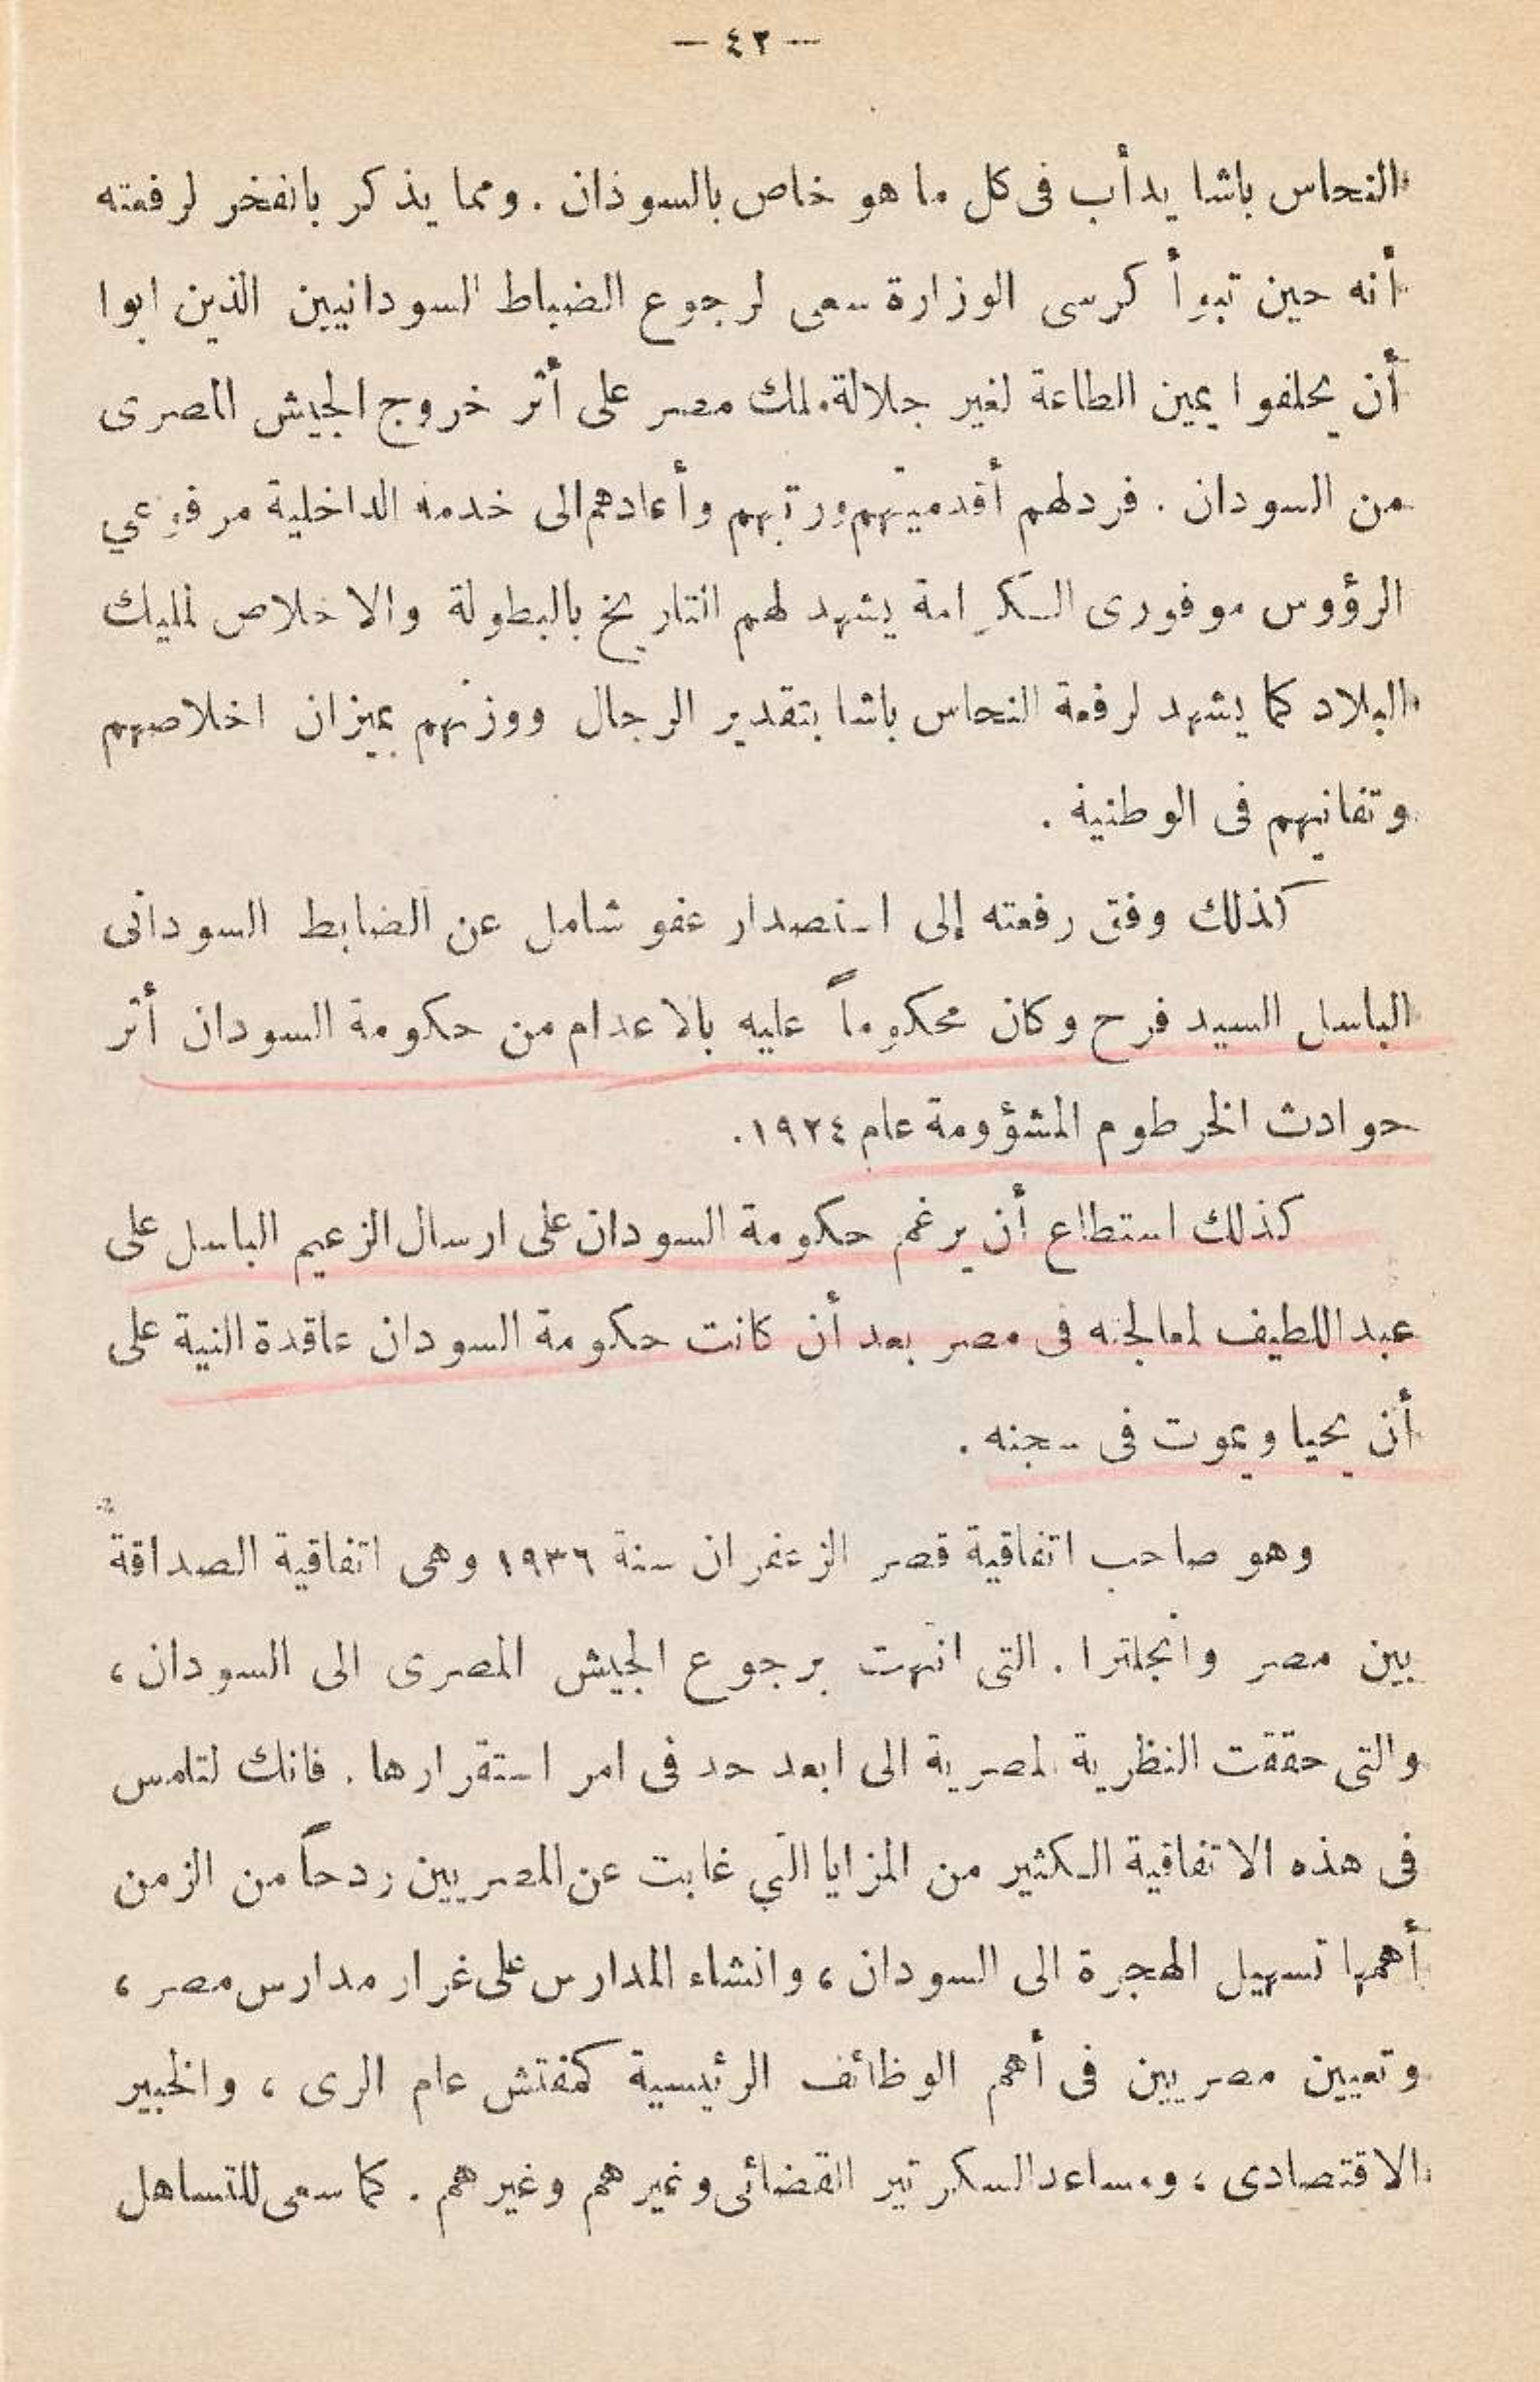 — ٤٢ —
النحاس باشا يدأب فى كل ما هو خاص بالسوذان . ومما يذكر بالفخر لرفعته
أنه حين تبوأ كرسى الوزارة سعى لرجوع الضباط السودانيين الذين ابوا
أن يحلفوا يمين الطاعة لغير جلالة ملك مصر على أثر خروج الجيش المصرى
من السودان . فرد لهم أقدميتهم ورتبهم وأعادهم الى خدمة الداخلية مرفوعي
الرؤوس موفورى الكرامة يشهد لهم التاريخ بالبطولة والاخلاص لمليك
البلاد كما يشهد لرفعة النحاس باشا بتقدير الرجال ووزنهم بميزان اخلاصهم
وتفانيهم فى الوطنية .
كذلك وفق رفعته إلى استصدار عفو شامل عن الضابط السودانى
الباسل السيد فرح وكان محكوماً عليه بالاعدام من حكومة السودان أثر
حوادث الخرطوم المشؤومة عام ١٩٢٤.
كذلك استطاع أن يرغم حكومة السودان على ارسال الزعيم الباسل على
عبد اللطيف لمعالجته فى مصر بعد أن كانت حكومة السودان عاقدة النية على
أن يحيا ويموت فى سجنه .
وهو صاحب اتفاقية قصر الزعفران سنة ١٩٣٦ وهى اتفاقية الصداقة
بين مصر وانجلترا . التى انتهت برجوع الجيش المصرى الى السودان ،
والتى حققت النظرية المصرية الى ابعد حد فى امر استقرارها . فانك لتلمس
فى هذه الاتفاقية الكثير من المزايا التي غابت عن المصريين ردحاً من الزمن
أهمها تسهيل الهجرة الى السودان ، وانشاء المدارس على غرار مدارس مصر ،
وتعيين مصريين فى أهم الوظائف الرئيسية كمفتش عام الرى ، والخبير
الاقتصادى ، ومساعد السكرتير القضائى وغيرهم وغيرهم . كما سعى للتساهل